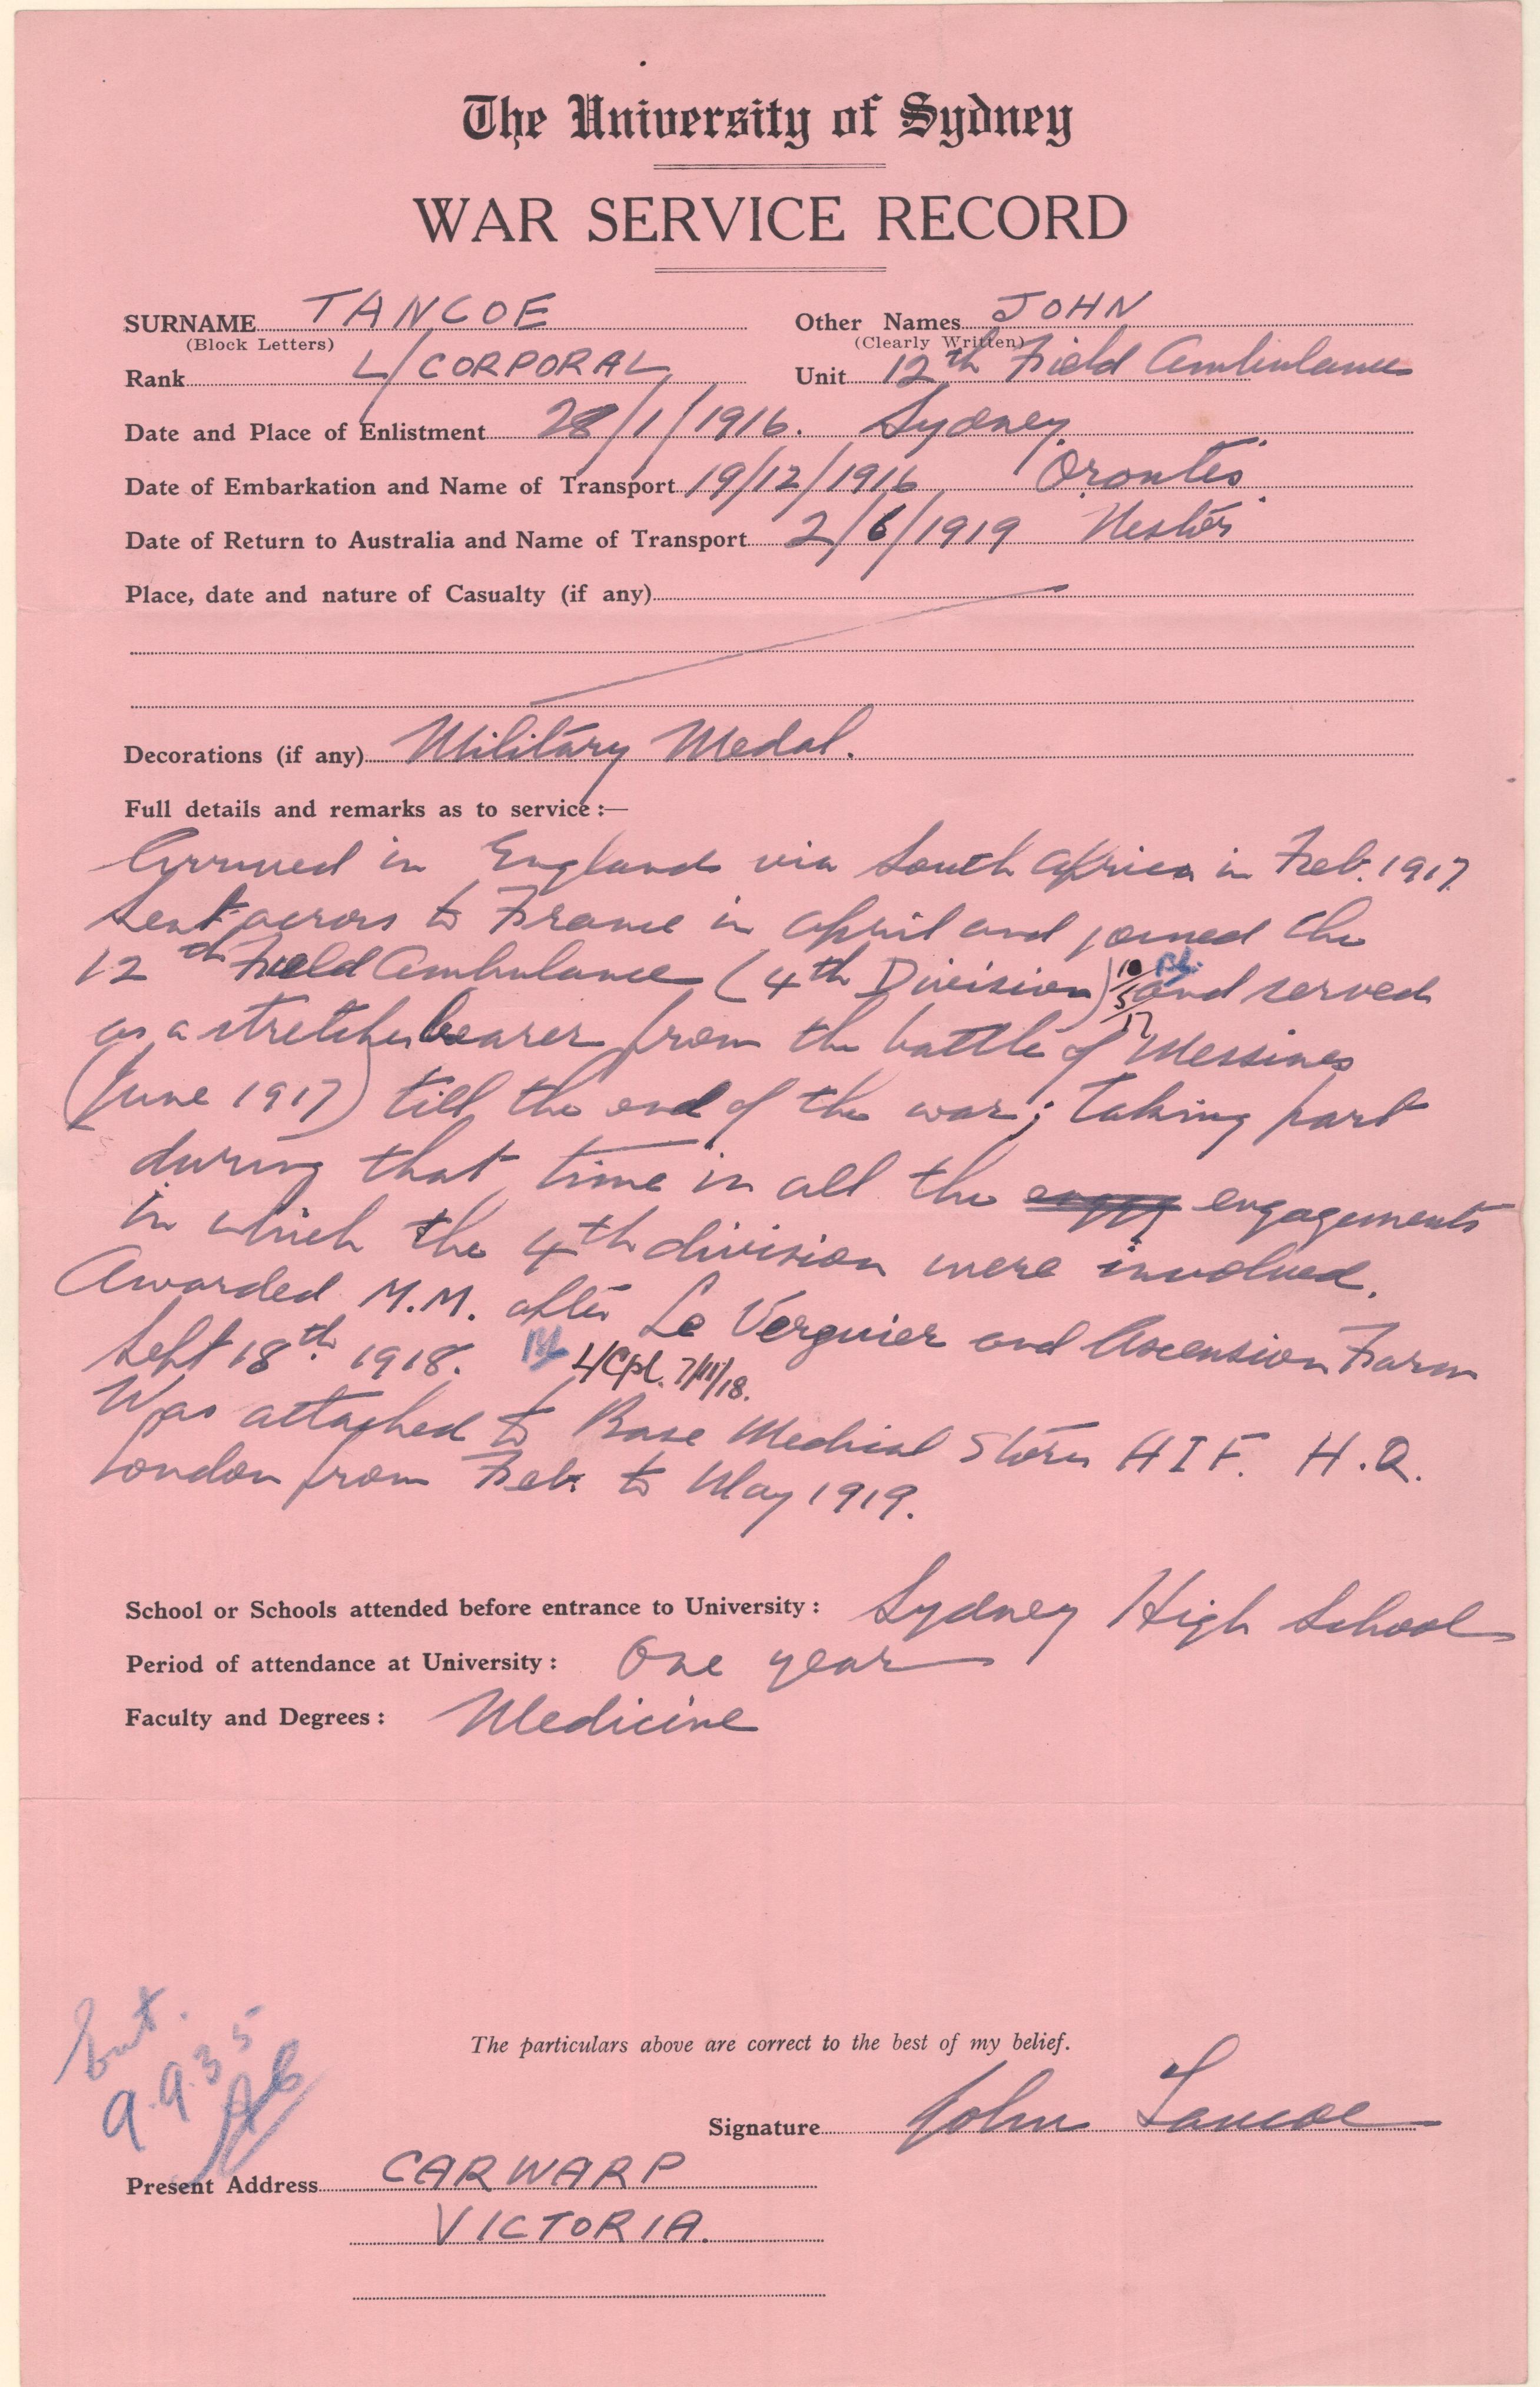 The University of Sydney
WAR SERVICE RECORD
SURNAME TANCOE Other Names JOHN
(Block Letters) (Clearly Written)
Rank L/CORPORAL Unit 12th Field Ambulance
Date and Place of Enlistment 28/1/1916. Sydney
Date of Embarkation and Name of Transport 19/12/1916 "Orontes"
Date of Return to Australia and Name of Transport 2/6/1919 "Nestor"
Place, date and nature of Casualty (if any)
Decorations (if any) Military Medal.
Full details and remarks as to service :—
Arrived in England via South Africa in Feb. 1917
Sent across to France in April and joined the
12th Field Ambulance (4th Division) 10/5/17 and served
as a stretcher bearer from the battle of Messines
(June 1917) till the end of the war; taking part
during that time in all the engagements
in which the 4th division were involved.
Awarded M.M. after Le Verguier and Ascension Farm
Sept 18th 1918. L/Cpl. 7/11/18.
Was attached to Base Medical Stores AIF. H.Q.
London from Feb. to May 1919.
School or Schools attended before entrance to University : Sydney High School
Period of attendance at University : One year
Faculty and Degrees : Medicine
The particulars above are correct to the best of my belief.
Ent.
9.9.35
Signature John Tancoe
Present Address CARWARP
VICTORIA.